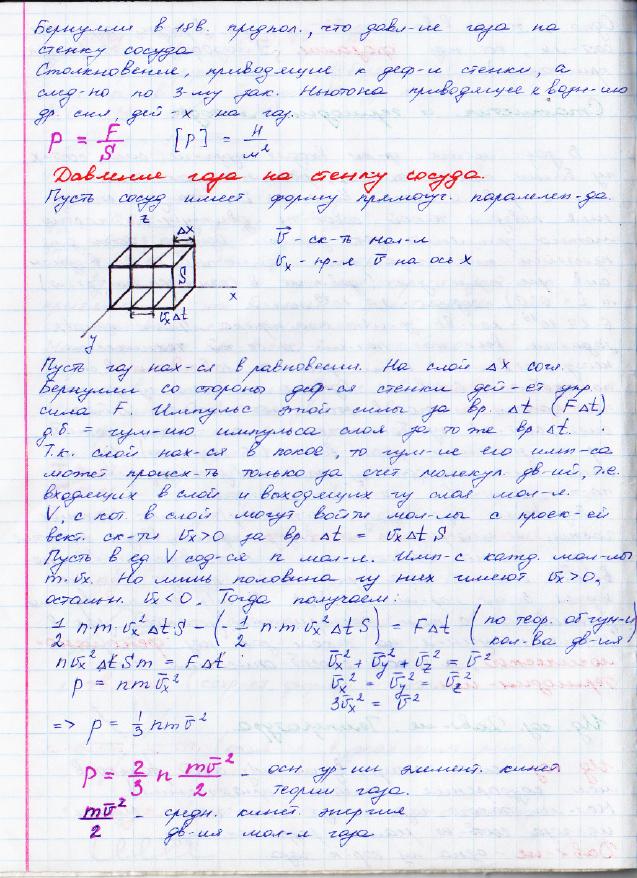 Бернулли в 18в. предпол., что давл-ие газа на
стенку сосуда
Столкновение, приводящие к деф-и стенки, а
след-но по 3-му зак. Ньютона приводящее к возн-ию
др. сил, дей-х на газ.
P = F/S [P] = Н/м²
Давление газа на стенку сосуда.
Пусть сосуд имеет форму прямоуг. паралелеп-да.
z Δx
S
x
y
v̄ - ск-ть мол-л
vₓ - пр-я v̄ на ось x
vₓΔt
Пусть газ нах-ся в равновесии. На слой Δx согл.
Бернулли со стороны деф-ся стенки дей-ет упр.
сила F. Импульс этой силы за вр. Δt (FΔt)
д.б. = изм-ию импульса слоя за то же вр. Δt.
Т.к. слой нах-ся в покое, то изм-ие его имп-са
может происх-ть только за счёт молекул. дв-ий, т.е.
входящих в слой и выходящих из слоя мол-л.
V, с кот. в слой могут войти мол-лы с проек-ей
вект. ск-ти vₓ>0 за вр. Δt = vₓΔtS
Пусть в ед V сод-ся n мол-л. Имп-с кажд. мол-лы
m·vₓ. Но лишь половина из них имеют vₓ>0,
остальн. vₓ<0. Тогда получаем:
1/2 n·m·vₓ²ΔtS - (-1/2 n·m vₓ²ΔtS) = FΔt (по теор. об изм-и
кол-ва дв-ия)
nvₓ²ΔtSm = FΔt v̄ₓ² + v̄y² + v̄z² = v̄²
P = nmv̄ₓ² v̄ₓ² = v̄y² = v̄z²
3v̄ₓ² = v̄²
=> P = 1/3 nmv̄²
P = 2/3 n mv̄²/2 - осн. ур-ии элемент. кинет
теории газа.
mv̄²/2 - средн. кинет. энергия
дв-ия мол-л газа